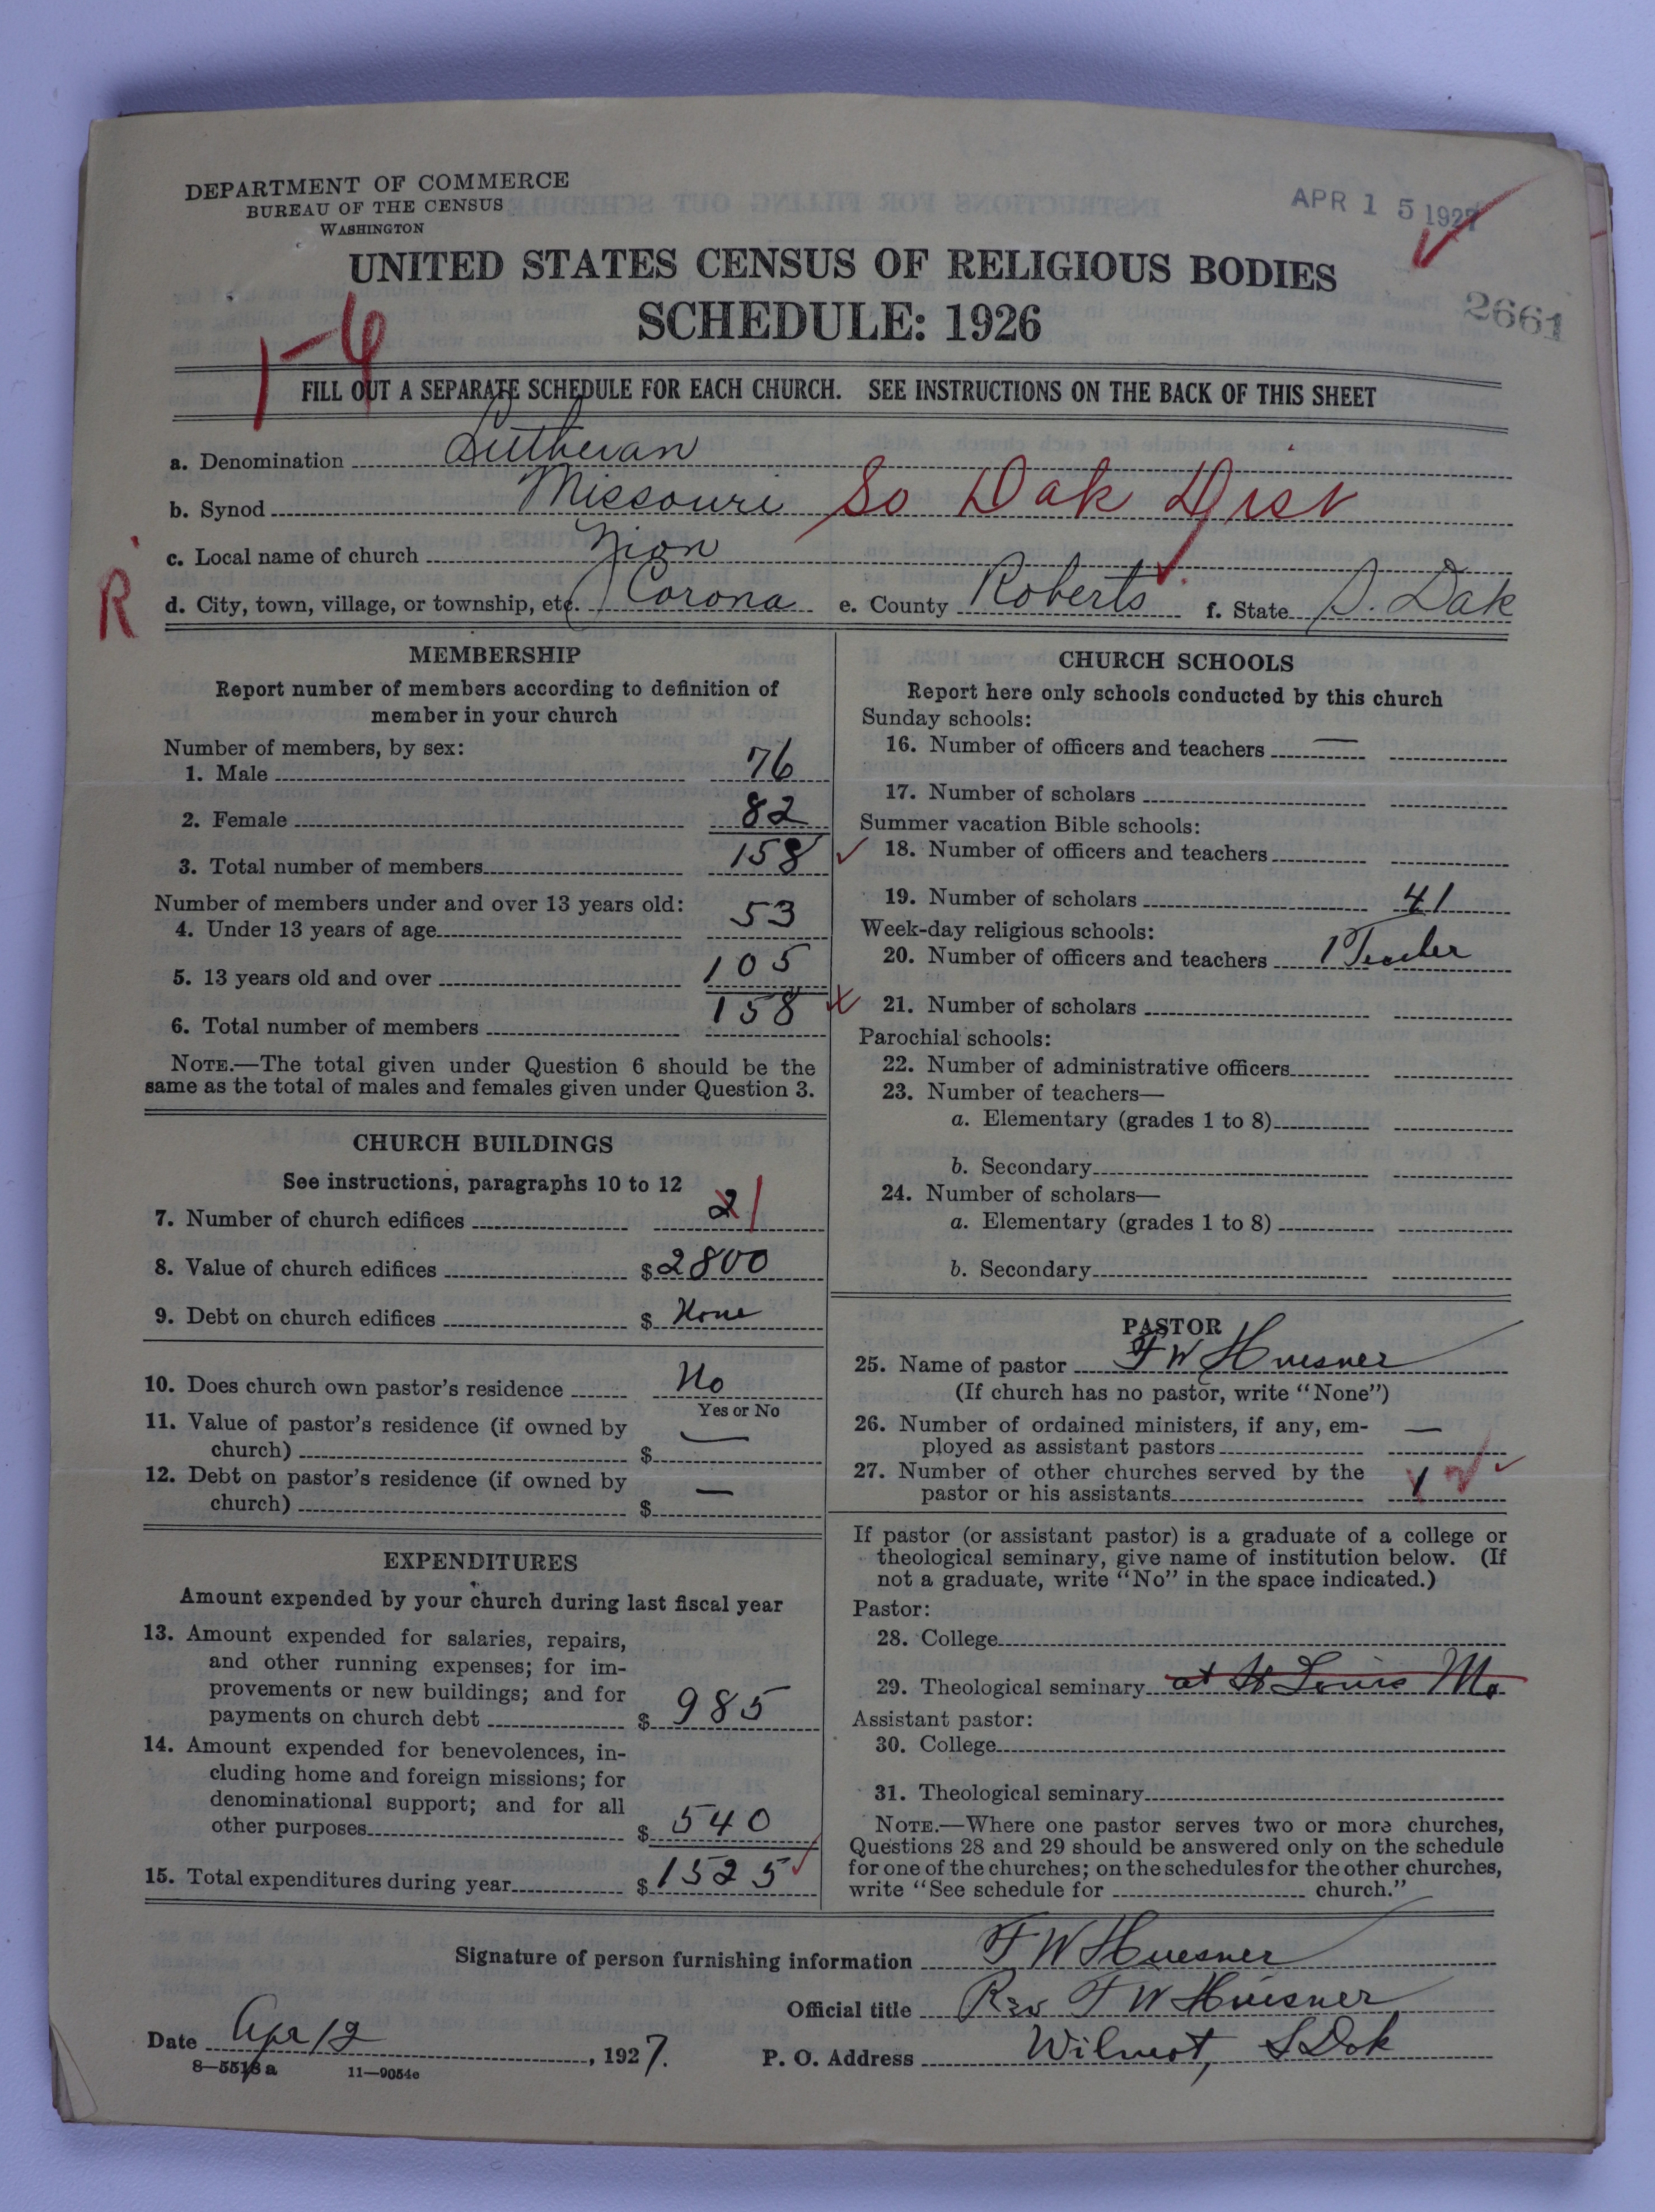 DEPARTMENT OF COMMERCE
BUREAU OF THE CENSUS
WASHINGTON
APR 15 1927
UNITED STATES CENSUS OF RELIGIOUS BODIES
SCHEDULE: 1926
2661
1-4
FILL OUT A SEPARATE SCHEDULE FOR EACH CHURCH. SEE INSTRUCTIONS ON THE BACK OF THIS SHEET
a. Denomination Lutheran
b. Synod Missouri So Dak Dist
c. Local name of church Zion
R
d. City, town, village, or township, etc. Corona e. County Roberts f. State S. Dak
MEMBERSHIP
Report number of members according to definition of
member in your church
Number of members, by sex:
1. Male 76
2. Female 82
3. Total number of members 158
Number of members under and over 13 years old:
4. Under 13 years of age 53
5. 13 years old and over 105
6. Total number of members 158
NOTE.—The total given under Question 6 should be the
same as the total of males and females given under Question 3.
CHURCH BUILDINGS
See instructions, paragraphs 10 to 12
7. Number of church edifices 2 1
8. Value of church edifices $ 2800
9. Debt on church edifices $ None
10. Does church own pastor's residence No
Yes or No
11. Value of pastor's residence (if owned by
church) $ —
12. Debt on pastor's residence (if owned by
church) $ —
EXPENDITURES
Amount expended by your church during last fiscal year
13. Amount expended for salaries, repairs,
and other running expenses; for im-
provements or new buildings; and for
payments on church debt $ 985
14. Amount expended for benevolences, in-
cluding home and foreign missions; for
denominational support; and for all
other purposes $ 540
15. Total expenditures during year $ 1525
CHURCH SCHOOLS
Report here only schools conducted by this church
Sunday schools:
16. Number of officers and teachers —
17. Number of scholars
Summer vacation Bible schools:
18. Number of officers and teachers
19. Number of scholars 41
Week-day religious schools:
20. Number of officers and teachers 1 Teacher
21. Number of scholars
Parochial schools:
22. Number of administrative officers
23. Number of teachers—
a. Elementary (grades 1 to 8)
b. Secondary
24. Number of scholars—
a. Elementary (grades 1 to 8)
b. Secondary
PASTOR
25. Name of pastor F W Huesner
(If church has no pastor, write "None")
26. Number of ordained ministers, if any, em-
ployed as assistant pastors —
27. Number of other churches served by the
pastor or his assistants 1
If pastor (or assistant pastor) is a graduate of a college or
theological seminary, give name of institution below. (If
not a graduate, write "No" in the space indicated.)
Pastor:
28. College
29. Theological seminary at St Louis Mo
Assistant pastor:
30. College
31. Theological seminary
NOTE.—Where one pastor serves two or more churches,
Questions 28 and 29 should be answered only on the schedule
for one of the churches; on the schedules for the other churches,
write "See schedule for church."
Signature of person furnishing information F W Huesner
Official title Rev F W Huesner
Date Apr 12, 1927. P. O. Address Wilmot, S Dak
8—5513 a 11—9054c